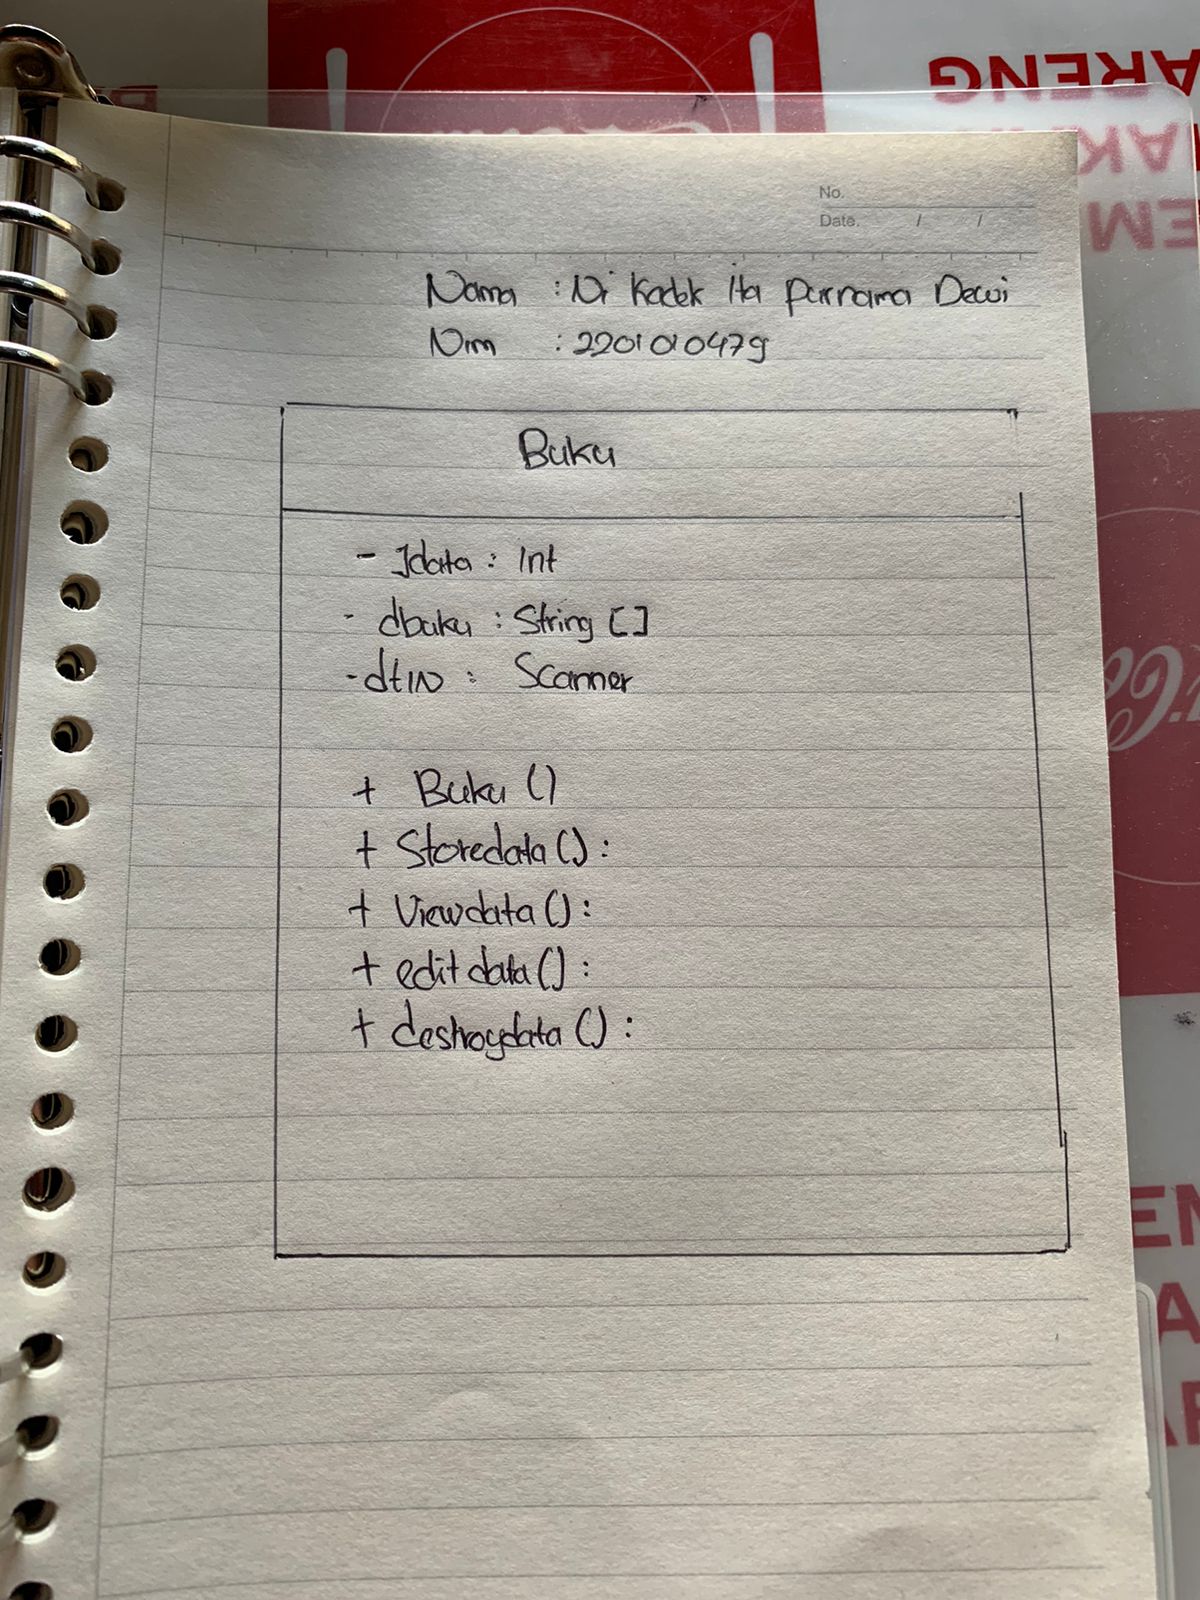 ARENG
No.
Date. / /
Nama : Ni Kadek Ita Purnama Dewi
Nim : 2201010479
Buku
- Jdata : Int
- dbuku : String []
- dtIN : Scanner
+ Buku ()
+ Storedata () :
+ Viewdata () :
+ edit data () :
+ destroydata () :